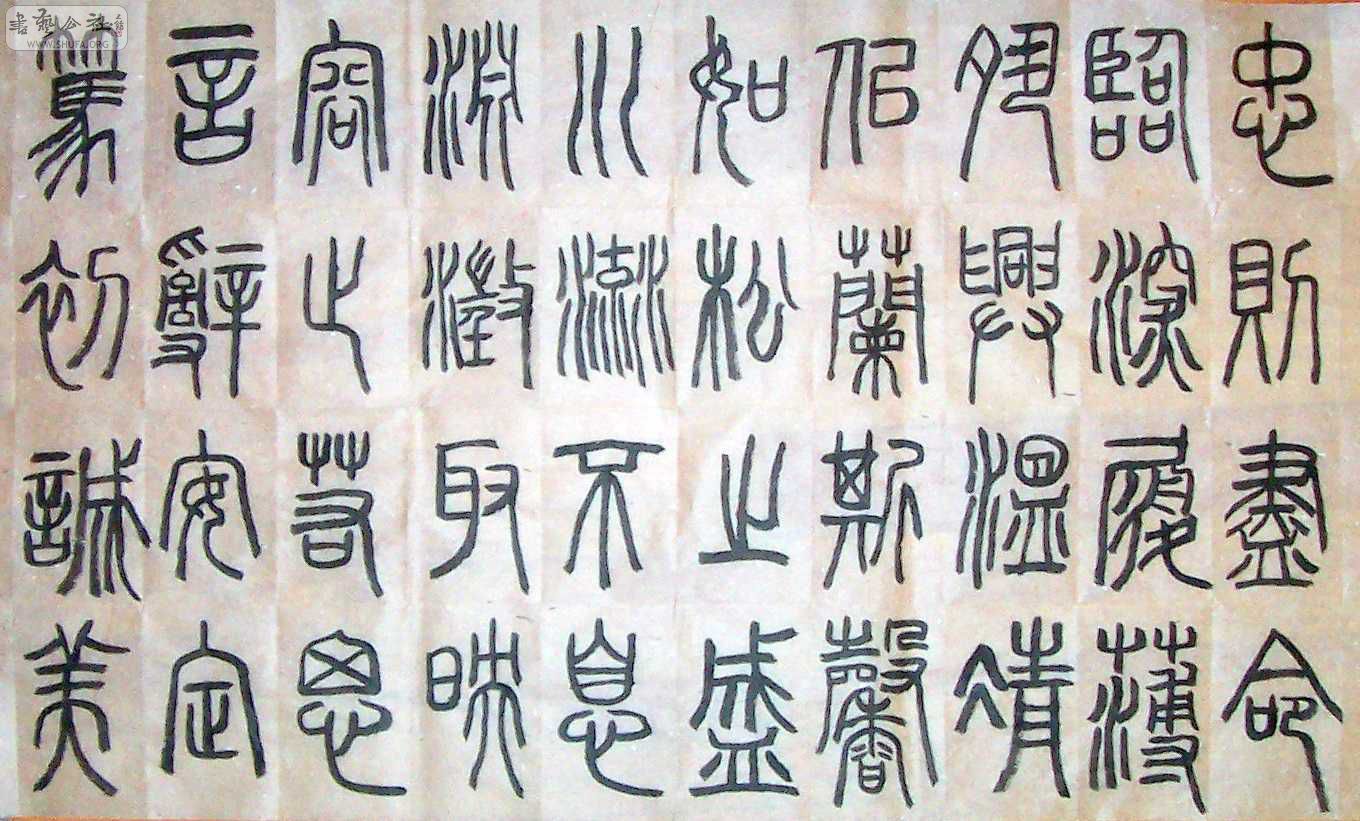 忠則盡命
臨深履薄
夙興溫凊
似蘭斯馨
如松之盛
川流不息
淵澂取映
容止若思
言辭安定
篤初誠美
書藝公社
WWW.SHUFA.ORG